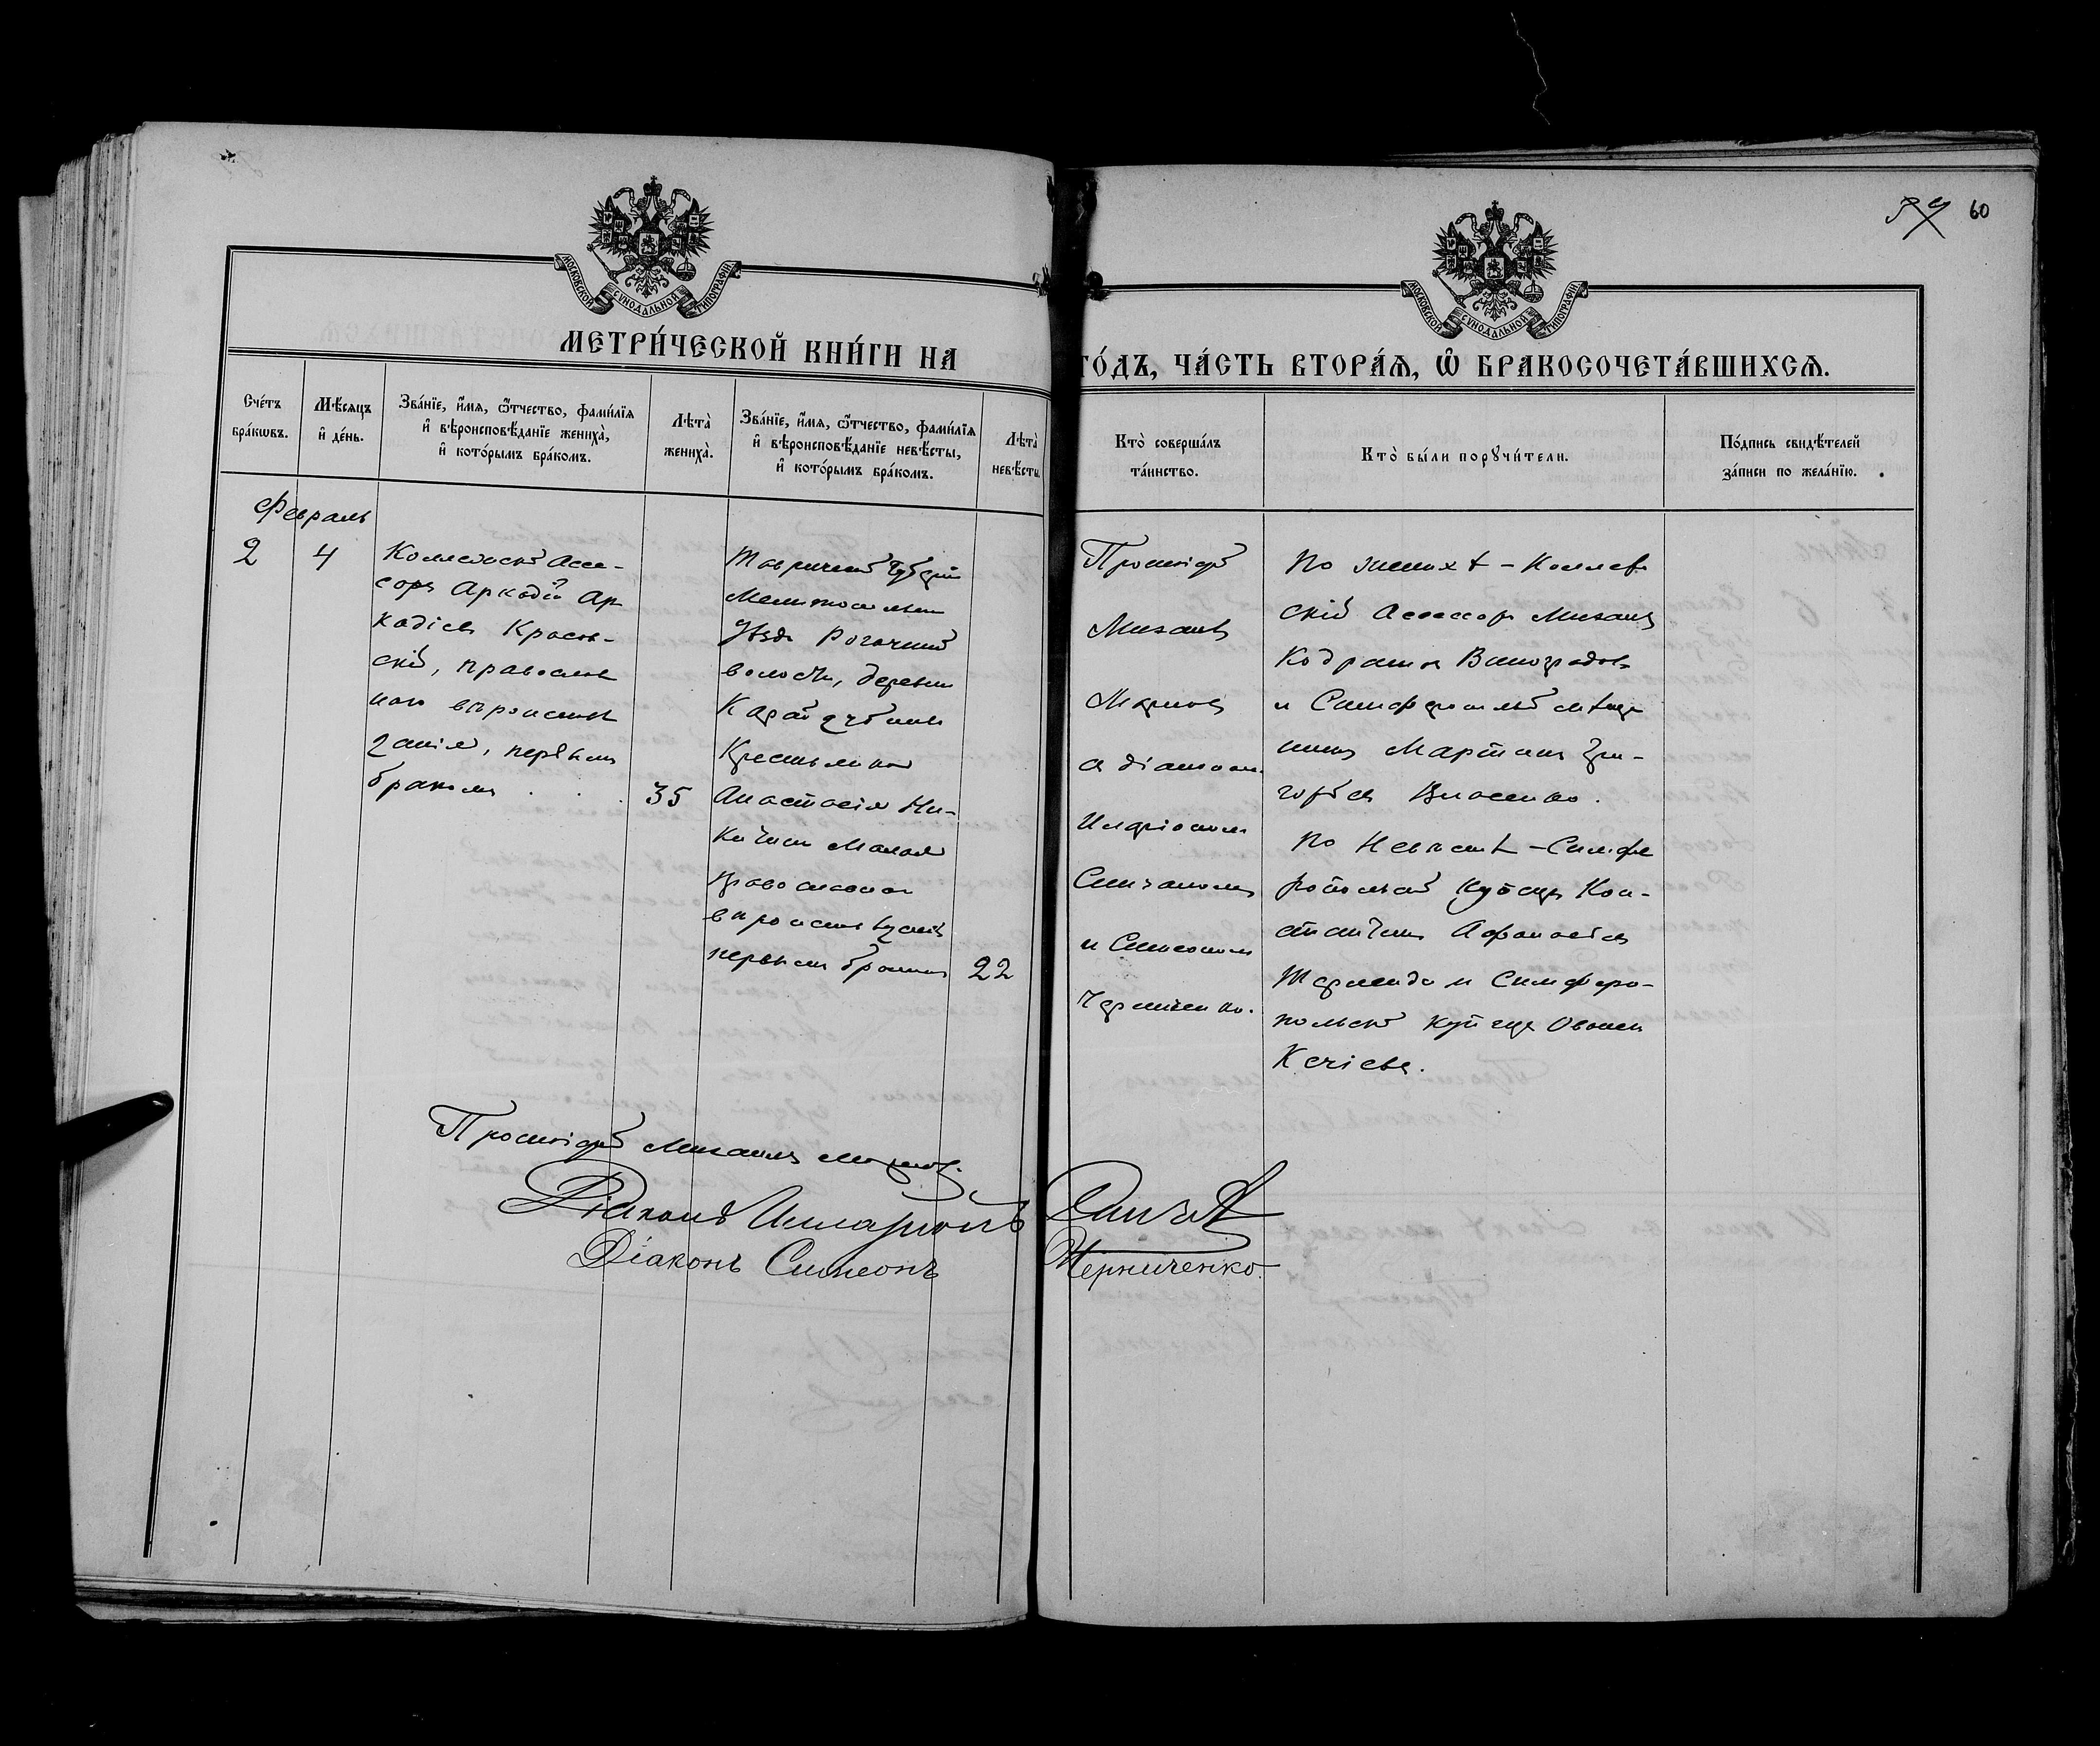 59 60
МОСКОВСКОЙ СѴНОДАЛЬНОЙ ТИПОГРАФІИ
МОСКОВСКОЙ СѴНОДАЛЬНОЙ ТИПОГРАФІИ
МЕТРИ́ЧЕСКОЙ КНИ́ГИ НА
ГО́ДЪ, ЧА́СТЬ ВТОРА́Ѧ, Ѡ҆ БРАКОСОЧЕТА́ВШИХСѦ.
Сче́тъ
бра́кѡвъ.
Мѣ́сяцъ
и҆ де́нь.
Зва́нїе, и҆́мя, ѻ҆́тчество, фами́лїя
и҆ вѣроисповѣ́данїе жениха̀,
и҆ кото́рымъ бра́комъ.
Лѣта̀
жениха̀.
Зва́нїе, и҆́мя, ѻ҆́тчество, фами́лїя
и҆ вѣроисповѣ́данїе невѣ́сты,
и҆ кото́рымъ бра́комъ.
Лѣта̀
невѣ́сты.
Кто̀ соверша́лъ
та́инство.
Кто̀ бы́ли порꙋчи́тели.
По́дпись свидѣ́телей
за́писи по жела́нїю.
Февраль
2
4
Коллежскій Ассе-
соръ Аркадій Ар
кадіевъ Красов-
скій, православ
наго вѣроиспов
занія, первымъ
бракомъ
35
Таврической губерніи
Мелитопольскаго
уѣзда
волости, деревни
Крестьянка
Анастасія Ни-
православнаго
первымъ бракомъ
22
Протоіерей
Михаилъ
Марковъ
съ діаконами
Иларіономъ
и Симеономъ
Черниченко.
По женихѣ – Коллеж
скій Асессоръ Михаилъ
Кодратовъ Виноградовъ
и Симферопольскій мѣща
нинъ Мартинъ Гри-
горьевъ Власенко.
По Невѣстѣ – Симфе
ропольскій купецъ Кон-
стантинъ Афанасьевъ
и Симферо-
польскій купецъ
Кечіевъ.
Протоіерей Михаилъ Марковъ.
Діаконъ Илларіонъ
Діаконъ Симеонъ Черниченко.